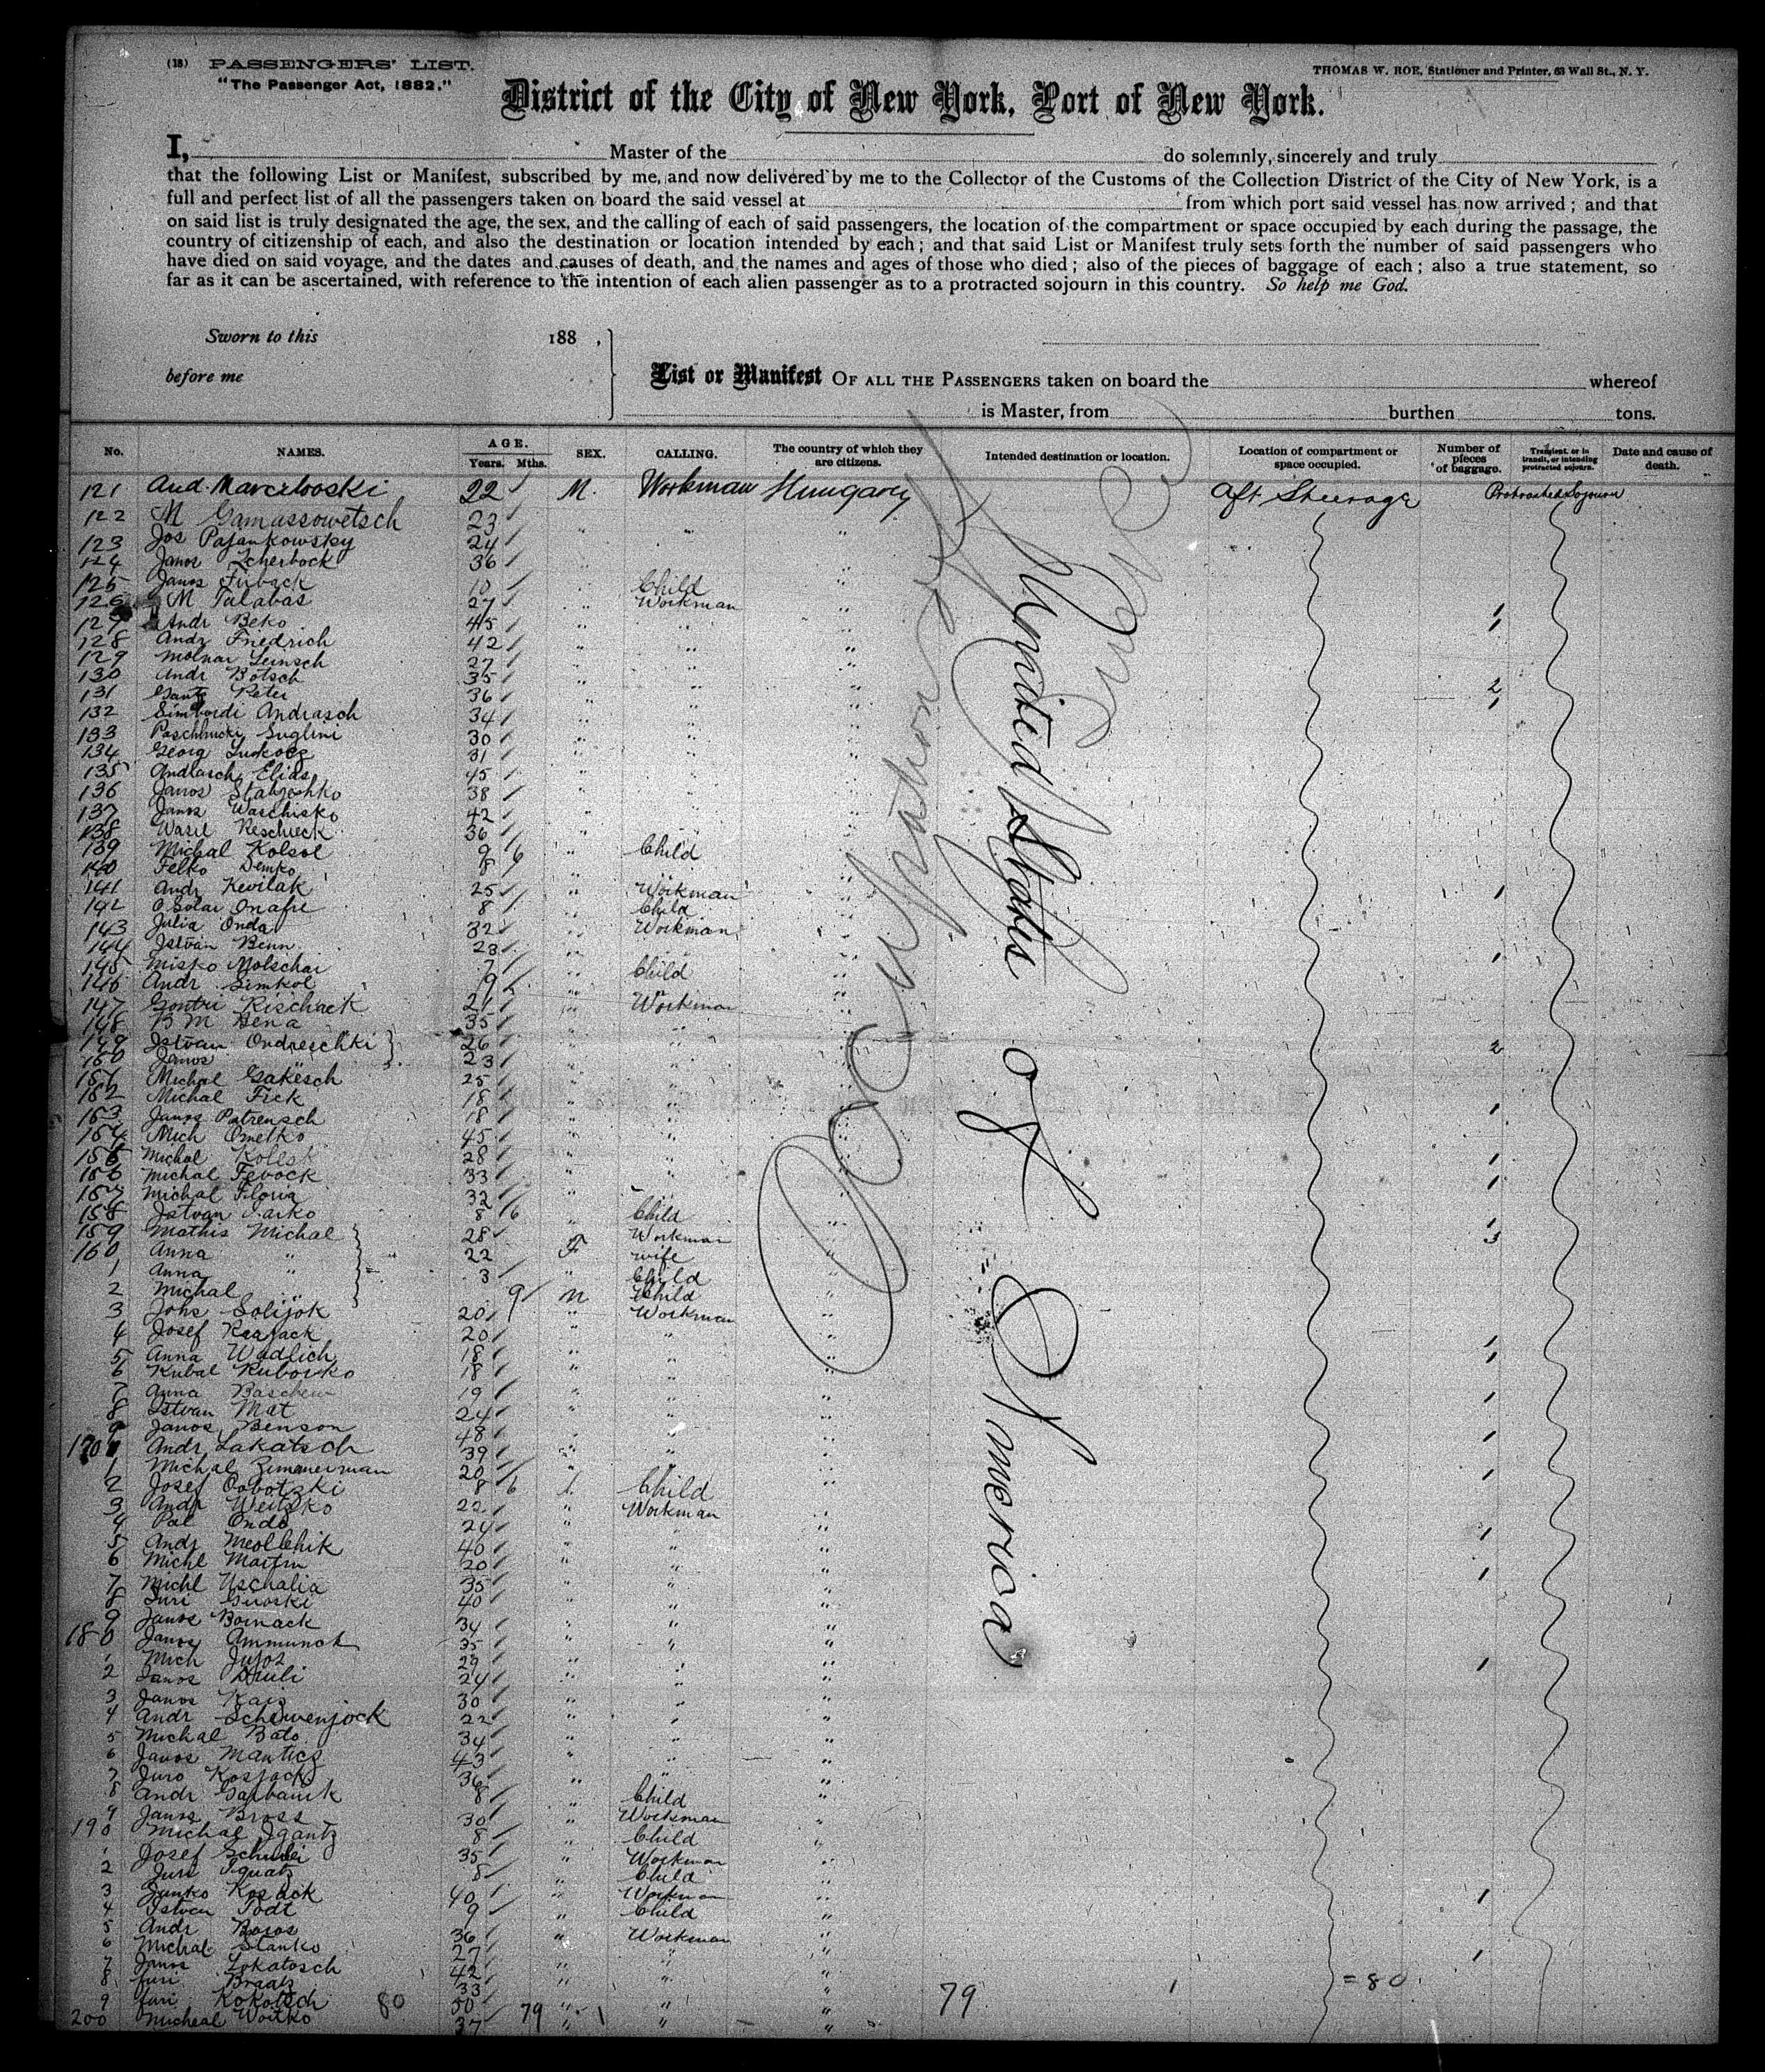 (18) PASSENGERS' LIST.
"The Passenger Act, 1882."
THOMAS W. ROE, Stationer and Printer, 63 Wall St., N. Y.
District of the City of New York, Port of New York.
I, Master of the do solemnly, sincerely and truly
that the following List or Manifest, subscribed by me, and now delivered by me to the Collector of the Customs of the Collection District of the City of New York, is a
full and perfect list of all the passengers taken on board the said vessel at from which port said vessel has now arrived; and that
on said list is truly designated the age, the sex, and the calling of each of said passengers, the location of the compartment or space occupied by each during the passage, the
country of citizenship of each, and also the destination or location intended by each; and that said List or Manifest truly sets forth the number of said passengers who
have died on said voyage, and the dates and causes of death, and the names and ages of those who died; also of the pieces of baggage of each; also a true statement, so
far as it can be ascertained, with reference to the intention of each alien passenger as to a protracted sojourn in this country. So help me God.
Sworn to this 188 ,
before me
List or Manifest OF ALL THE PASSENGERS taken on board the whereof
is Master, from burthen tons.
No. NAMES. AGE. Years. Mths. SEX. CALLING. The country of which they are citizens. Intended destination or location. Location of compartment or space occupied. Number of pieces of baggage. Transient, or in transit, or intending protracted sojourn. Date and cause of death.
United States of America
121 And. Marcelooski 22 M. Workman Hungary Aft Steerage Protracted Sojourn
122 M Gamassowetsch 23 " "
123 Jos Pajankowsky 24
124 Janos Scherbock 36
125 Janos Firback 10 Child
126 M Talabas 27 Workman 1
127 Andr Beko 45 1
128 Andr Friedrich 42
129 Molnar Leinsch 27
130 Andr Botsch 35 2
131 Gantz Peter 36 1
132 Simbordi Andrasch 34
133 Suglini 30
134 Georg 31
135 Andrasch Elias 45
136 Janos Stahoshko 38
137 Janos Waschisko 42
138 Wasil Reschieck 36
139 Michal Kolsol 9 6 Child
140 Felko Demko 8
141 Andr Kevilak 25 Workman 1
142 Onafre 8 Child
143 Julia Onda 32 Workman
144 Istvan Benn 23
145 Misko Molschai 7 Child 1
146 Andr Simkol 9
147 Rischack 21 Workman
148 B M Bena 35
149 Istvan Ondreschki 26 2
150 Janos 23
151 Michal Gakesch 25
152 Michal Fick 18
153 Janos Patrensch 18 1
154 Mich Omelko 45
155 Michal Kolesk 28 1
156 Michal Fevock 33 1
157 Michal Floria 32
158 Istvan Jarko 8 6 Child 1
159 Mathis Michal 28 Workman 3
160 Anna " 22 F wife
1 Anna " 3 Child
2 Michal " 9 M Child
3 Johs Solijok 20 Workman
4 Josef Raajack 20 1
5 Anna Wadlich 18 1
6 Kubal Kubovko 18
7 Anna Baschew 19 1
8 Istvan Mat 24
9 Janos Benson 48 1
170 Andr Lakatsch 39
1 Michal Zimmerman 20 1
2 Josef Oobotzki 8 6 Child
3 Andr Weitsko 22 Workman
4 Pal Onda 24 1
5 Andr 40
6 Michl Martin 20 1
7 Michl Uschalia 35
8 Juri Guoski 40
9 Janos Bornack 34
180 Janos Ammunok 35
1 Mich Jujoz 29 1
2 Janos Dzuli 24
3 Janos Kais 30
4 Andr Schewenjock 22
5 Michal Bato 34
6 Janos Manticz 43
7 Juro Kosjack 36
8 Andr Garbanik 8 Child
9 Janos Bross 30 Workman
190 Michal Igantz 8 Child
1 Josef Schulei 35 Workman
2 Juri Iquatz 8 Child
3 Janko Kosack 40 Workman 1
4 Istvan Todt 9 Child
5 Andr Boros 36 Workman
6 Michal Stanko 27 1
7 Janos Lokatosch 42
8 Juri Braatz 33 = 80
9 Juri Kokotsch 80 50 79 1 79 1
200 Micheal Woitko 37